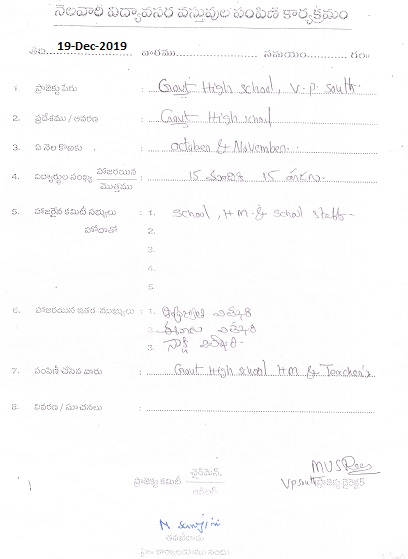 నెలవారి విద్యావసర వస్తువుల పంపిణి కార్యక్రమం
తేది 19-Dec-2019 వారము సమయం గం॥
1. ప్రాజెక్టు పేరు : Govt High school, V.P. South.
2. ప్రదేశము / ఆవరణ : Govt High school
3. ఏ నెల కొఱకు : October & November.
4. విద్యార్థుల సంఖ్య హాజరయిన / మొత్తము : 15 మందికి 15
5. హాజరైన కమిటీ సభ్యులు : 1. School, H.M. & School staff
హోదాతో 2.
3.
4.
5.
6. హాజరయిన ఇతర ముఖ్యులు : 1.
2.
3.
7. పంపిణీ చేసిన వారు : Govt High school H.M & Teacher's
8. వివరణ / సూచనలు :
ప్రాజెక్ట్ కమిటీ ఛైర్మెన్
V.P South ప్రాజెక్టు డైరెక్టర్